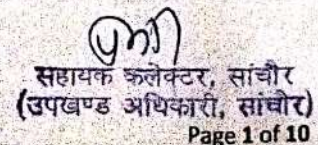 सहायक कलेक्टर, सांचौर
(उपखण्ड अधिकारी, सांचोर)
Page 1 of 10